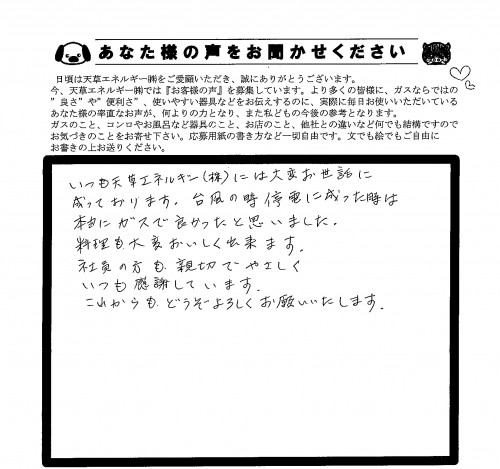 あなた様の声をお聞かせください
日頃は天草エネルギー㈱をご愛顧いただき、誠にありがとうございます。
今、天草エネルギー㈱では『お客様の声』を募集しています。より多くの皆様に、ガスならではの
”良さ”や”便利さ”、使いやすい器具などをお伝えするのに、実際に毎日お使いいただいている
あなた様の率直なお声が、何よりの力となり、また私どもの今後の参考となります。
ガスのこと、コンロやお風呂など器具のこと、お店のこと、他社との違いなど何でも結構ですので
お気づきのことをお寄せ下さい。応募用紙の書き方など一切自由です。文でも絵でもご自由に
お書きの上お送りください。
いつも天草エネルギー(株)には大変お世話に
成っております。台風の時停電に成った時は
本当にガスで良かったと思いました。
料理も大変おいしく出来ます。
社員の方も親切でやさしく
いつも感謝しています。
これからもどうぞよろしくお願いいたします。